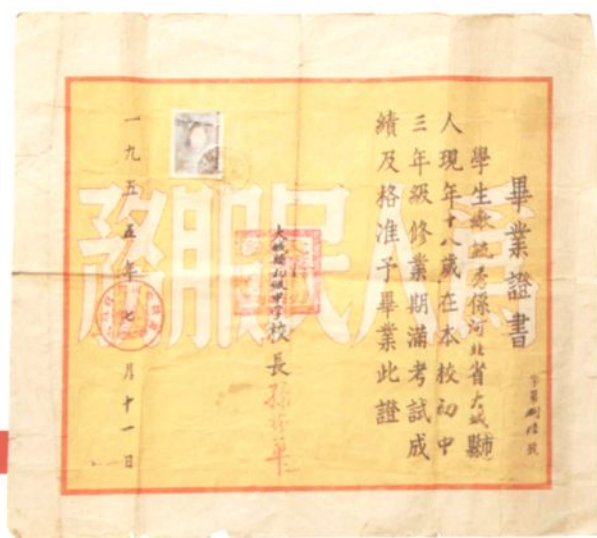 畢業證書
字第 號
學生 毓秀係河北省大城縣市
人現年十八歲在本校初中
三年級修業期滿考試成
績及格准予畢業此證
大城縣北 中学校長
一九五五年七月十一日
為人民服務